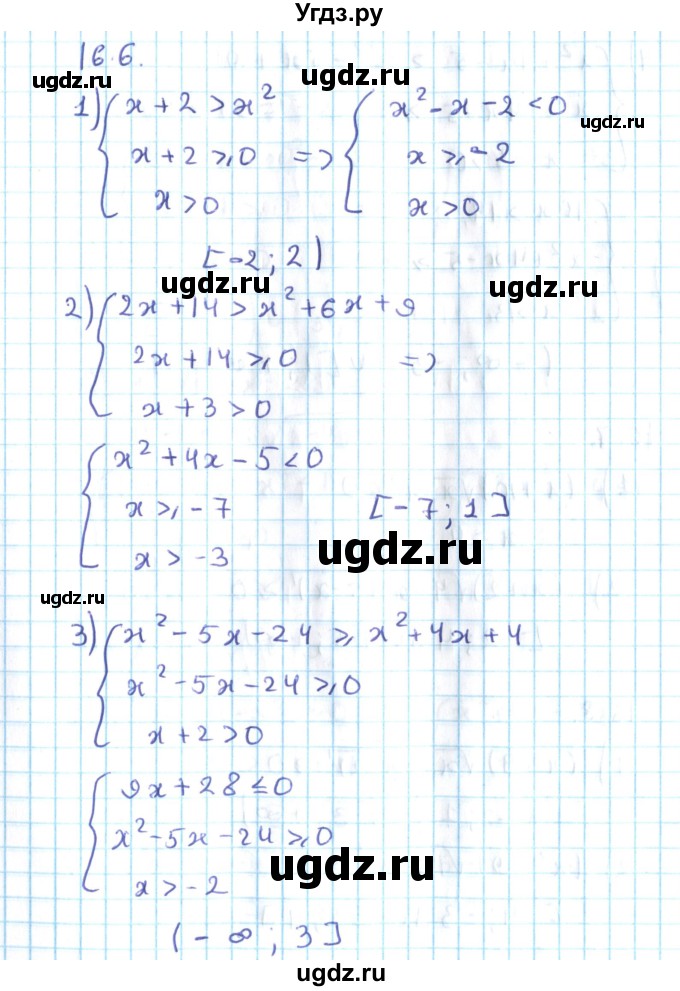 Угдз.ру
16.6.
ugdz.ru ugdz.ru
1) { x + 2 > x²
x + 2 ⩾ 0 =>
x > 0
{ x² - x - 2 < 0
ugdz.ru
x ⩾ -2
x > 0
[-2; 2)
ugdz.ru ugdz.ru
2) { 2x + 14 > x² + 6x + 9
2x + 14 ⩾ 0 =>
x + 3 > 0
{ x² + 4x - 5 < 0
x ⩾ -7 [-7; 1]
x > -3
ugdz.ru
ugdz.ru
3) { x² - 5x - 24 ⩾ x² + 4x + 4
x² - 5x - 24 ⩾ 0
x + 2 > 0
{ 9x + 28 ≤ 0
x² - 5x - 24 ⩾ 0
x > -2
ugdz.ru
(-∞; 3]
ugdz.ru